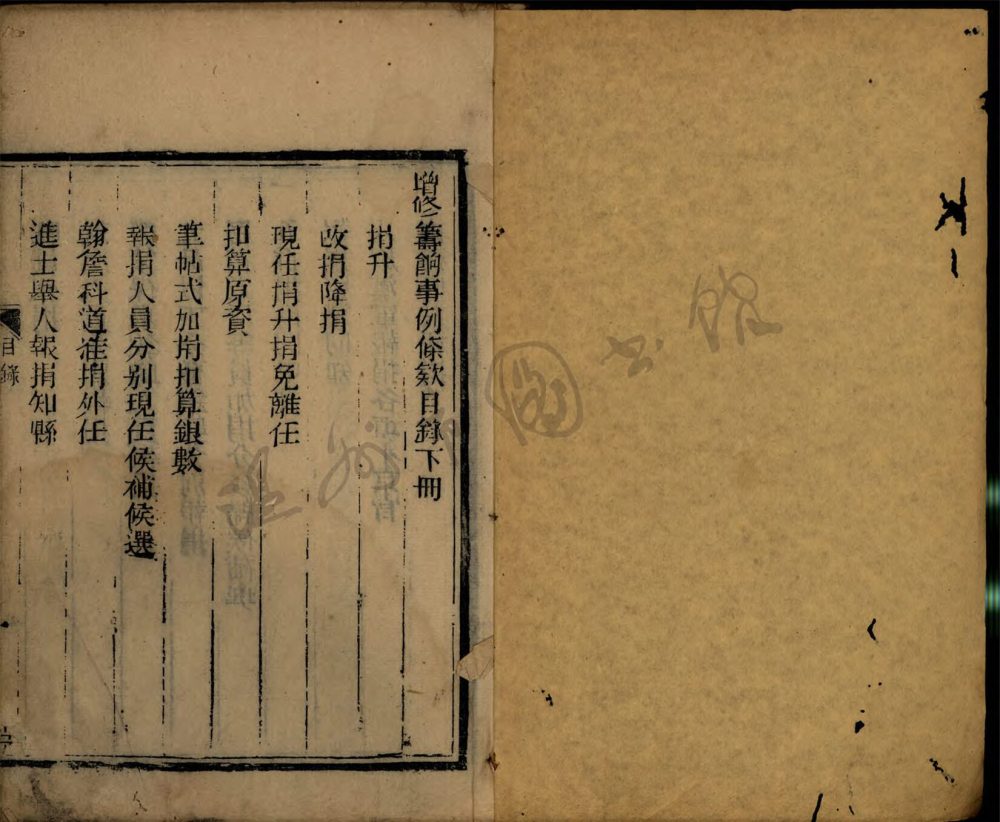 增修籌餉事例條欵目錄下冊
捐升
改捐降捐
現任捐升捐免離任
扣算原資
筆帖式加捐扣算銀數
報捐人員分别現任候補候選
翰詹科道准捐外任
進士舉人報捐知縣
目錄